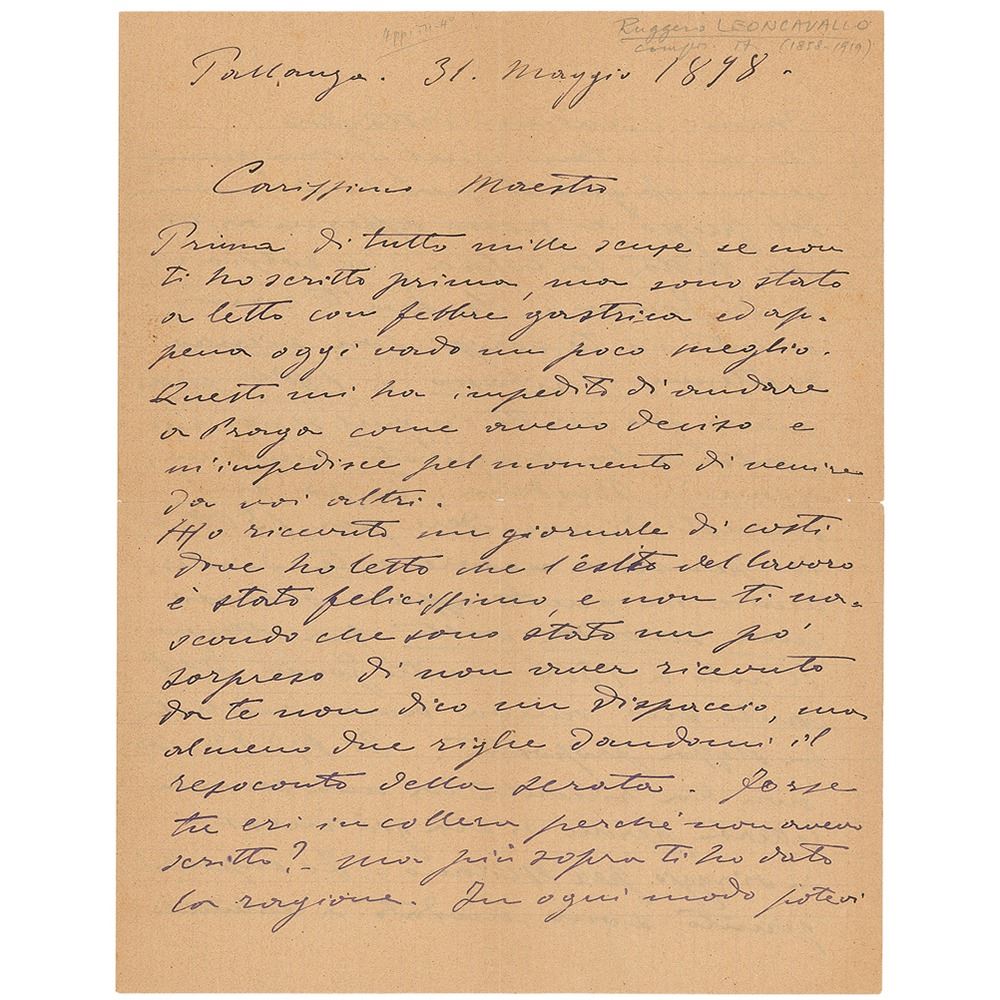 Ruggero LEONCAVALLO
compos. it. (1858-1919)
Pallanza. 31. Maggio 1898.
Carissimo Maestro
Prima di tutto mille scuse se non
ti ho scritto prima, ma sono stato
a letto con febbre gastrica ed ap-
pena oggi vado un poco meglio.
Questo mi ha impedito di andare
a Praga come avevo deciso e
m'impedisce pel momento di venire
da voi altri.
Ho ricevuto un giornale di costì
dove ho letto che l'esito del lavoro
è stato felicissimo, e non ti na-
scondo che sono stato un pò
sorpreso di non aver ricevuto
da te non dico un dispaccio, ma
almeno due righe dandomi il
resoconto della serata. Forse
tu eri in collera perchè non avevo
scritto? – ma più sopra ti ho dato
la ragione. In ogni modo potevi